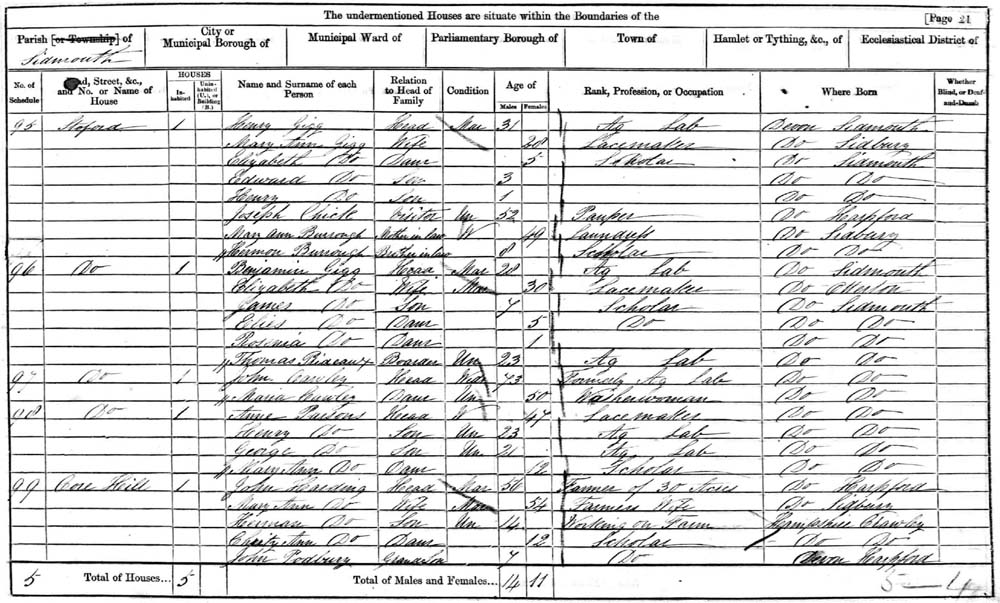 The undermentioned Houses are situate within the Boundaries of the [Page 21
Parish [or Township] of Sidmouth City or Municipal Borough of Municipal Ward of Parliamentary Borough of Town of Hamlet or Tything, &c., of Ecclesiastical District of
No. of Schedule Road, Street, &c., and No. or Name of House HOUSES Inhabited Uninhabited (U.), or Building (B.) Name and Surname of each Person Relation to Head of Family Condition Age of Males Females Rank, Profession, or Occupation Where Born Whether Blind, or Deaf-and-Dumb
95 Stoford 1 Henry Gigg Head Mar 31 Ag Lab Devon Sidmouth
Mary Ann Gigg Wife 28 Lacemaker Do Sidbury
Elizabeth Do Daur 5 Scholar Do Sidmouth
Edward Do Son 3 Do Do
Henry Do Son 1 Do Do
Joseph Chick Visitor Un 52 Pauper Do Harpford
Mary Ann Burrough Mother in law W 49 Laundress Do Sidbury
Burrough Brother in law 8 Scholar Do Do
96 Do 1 Benjamin Gigg Head Mar 28 Ag Lab Do Sidmouth
Elizabeth Do Wife Mar 30 Lacemaker Do Otterton
James Do Son 7 Scholar Do Sidmouth
Do Daur 5 Do Do Do
Rosinia Do Daur 1 Do Do
Thomas Boarder Un 23 Ag Lab Do Do
97 Do 1 John Head Widr 73 Formerly Ag Lab Do Do
Maria Daur Un 50 Washerwoman Do Do
98 Do 1 Anne Parsons Head W 47 Lacemaker Do Do
Henry Do Son Un 23 Ag Lab Do Do
George Do Son Un 21 Ag Lab Do Do
Mary Ann Do Daur 12 Scholar Do Do
99 Core Hill 1 John Harding Head Mar 56 Farmer of 30 Acres Do Harpford
Mary Ann Do Wife Mar 54 Farmers Wife Do Sidbury
Do Son Un 14 Working on Farm Hampshire Crawley
Ann Do Daur 12 Scholar Do Do
John Podbury Grandson 7 Do Devon Harpford
5 Total of Houses... 5 Total of Males and Females... 14 11